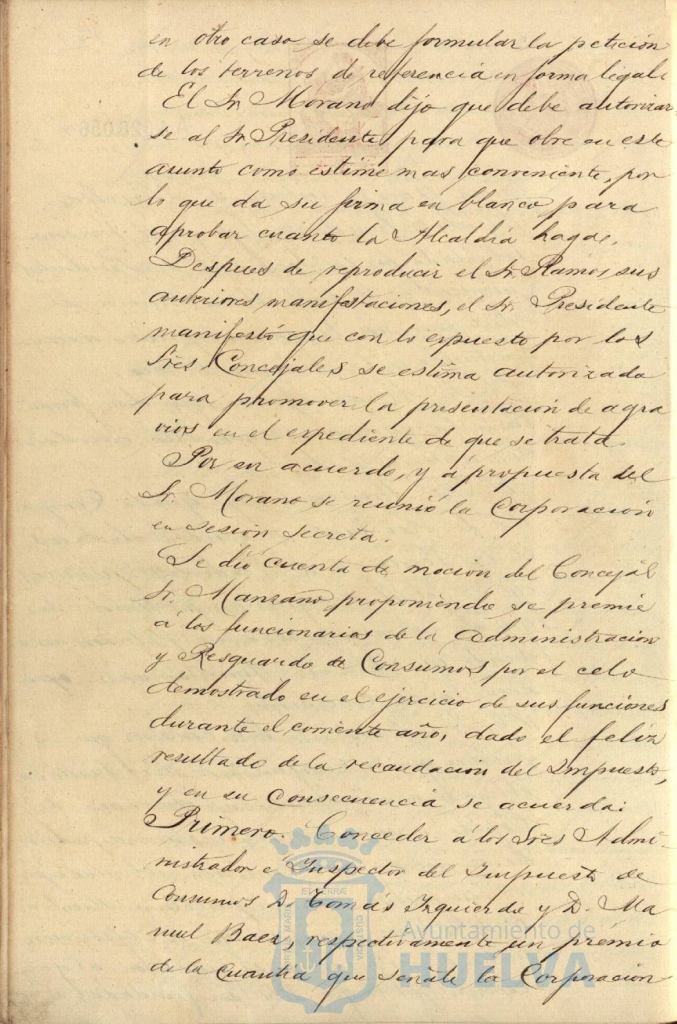 en otro caso se debe formular la petición
de los terrenos de referencia en forma legal.
El Sr. Morano dijo que debe autorizar-
se al Sr. Presidente para que obre en este
asunto como estime mas conveniente, por
lo que da su firma en blanco para
aprobar cuanto la Alcaldía haga.
Despues de reproducir el Sr. Ramos sus
anteriores manifestaciones, el Sr. Presidente
manifestó que con lo expuesto por los
Sres. Concejales se estima autorizada
para promover la presentación de agra
vios en el expediente de que se trata.
Por su acuerdo, y á propuesta del
Sr. Morano se reunió la Corporación
en sesión secreta.
Se dió cuenta de moción del Concejal
Sr. Manzano proponiendo se premie
á los funcionarios de la Administración
y Resguardo de Consumos por el celo
demostrado en el ejercicio de sus funciones
durante el corriente año, dado el feliz
resultado de la recaudación del Impuesto,
y en su consecuencia se acuerda:
Primero. Conceder á los Sres. Admi-
nistrador e Inspector del Impuesto de
Consumos D. Tomás Izquierdo y D. Ma
nuel Baez, respectivamente un premio
de la cuantía que señale la Corporación
Ayuntamiento de
HUELVA